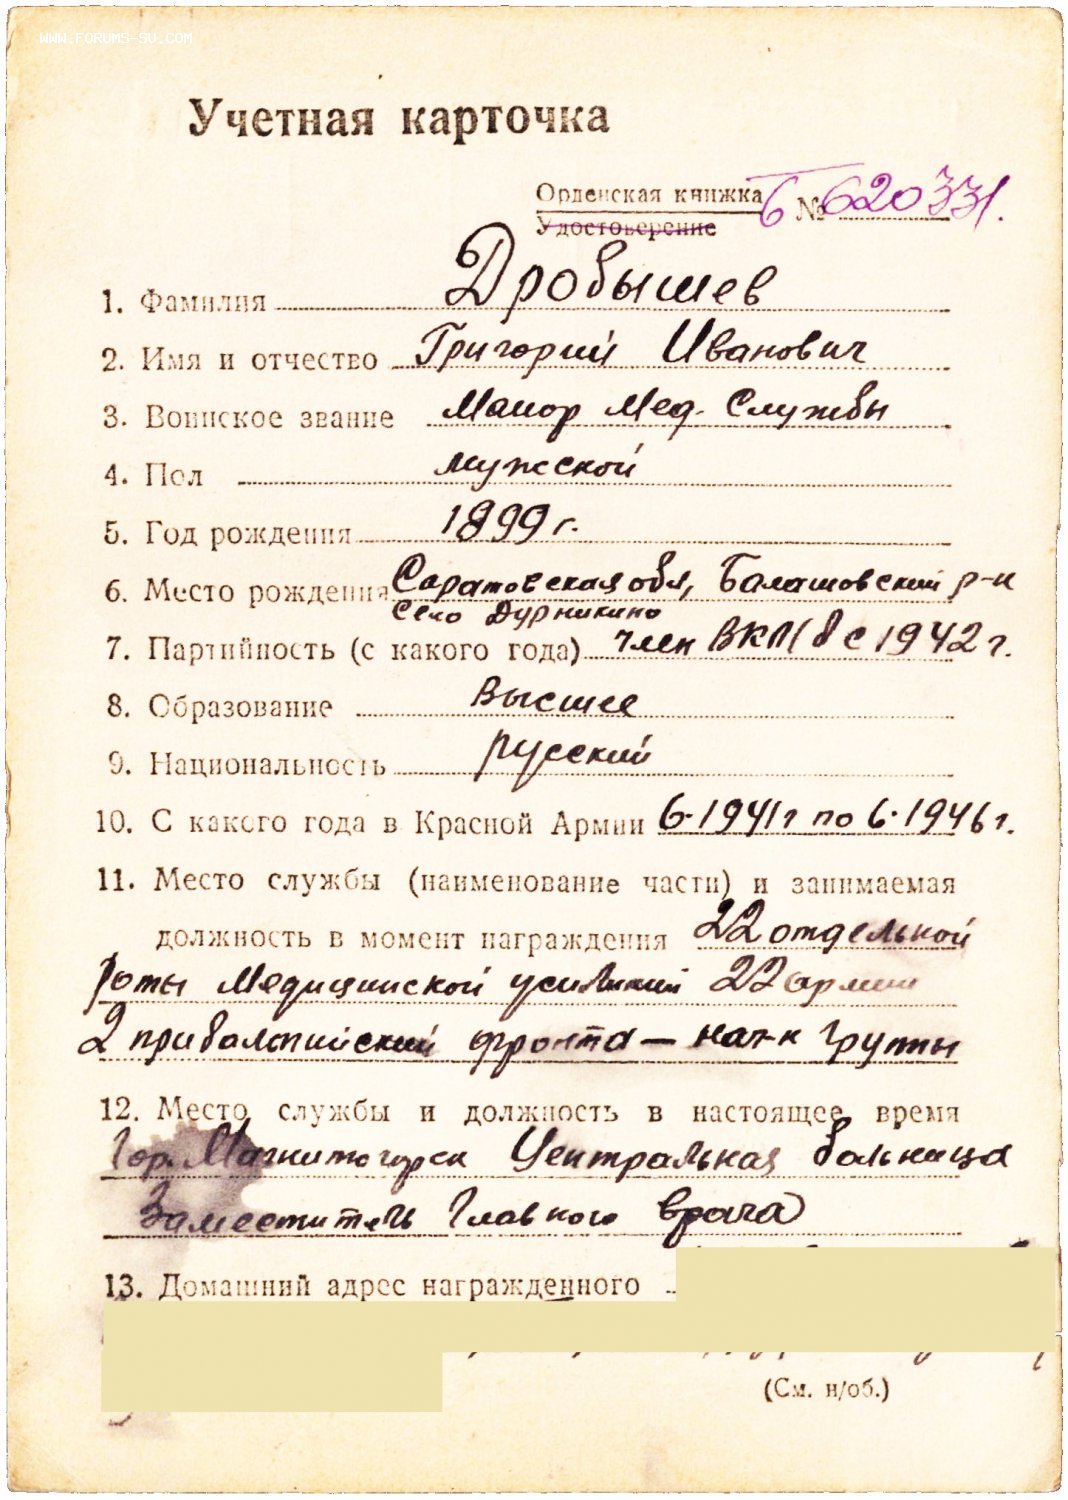 WWW.FORUMS-SU.COM
Учетная карточка
Орденская книжка Б № 620331.
Удостоверение
1. Фамилия Дробышев
2. Имя и отчество Григорий Иванович
3. Воинское звание Маиор Мед. Службы
4. Пол мужской
5. Год рождения 1899 г.
6. Место рождения Саратовская обл, Балашовский р-н
село Дурникино
7. Партийность (с какого года) член ВКП(б с 1942 г.
8. Образование Высшее
9. Национальность русский
10. С какого года в Красной Армии 6.1941 г по 6.1946 г.
11. Место службы (наименование части) и занимаемая
должность в момент награждения 22 отдельной
роты Медицинской усиления 22 армии
2 прибалтийский фронта — нач-к группы
12. Место службы и должность в настоящее время
Гор. Магнитогорск Центральная больница
Заместитель Главного врача
13. Домашний адрес награжденного
(См. н/об.)